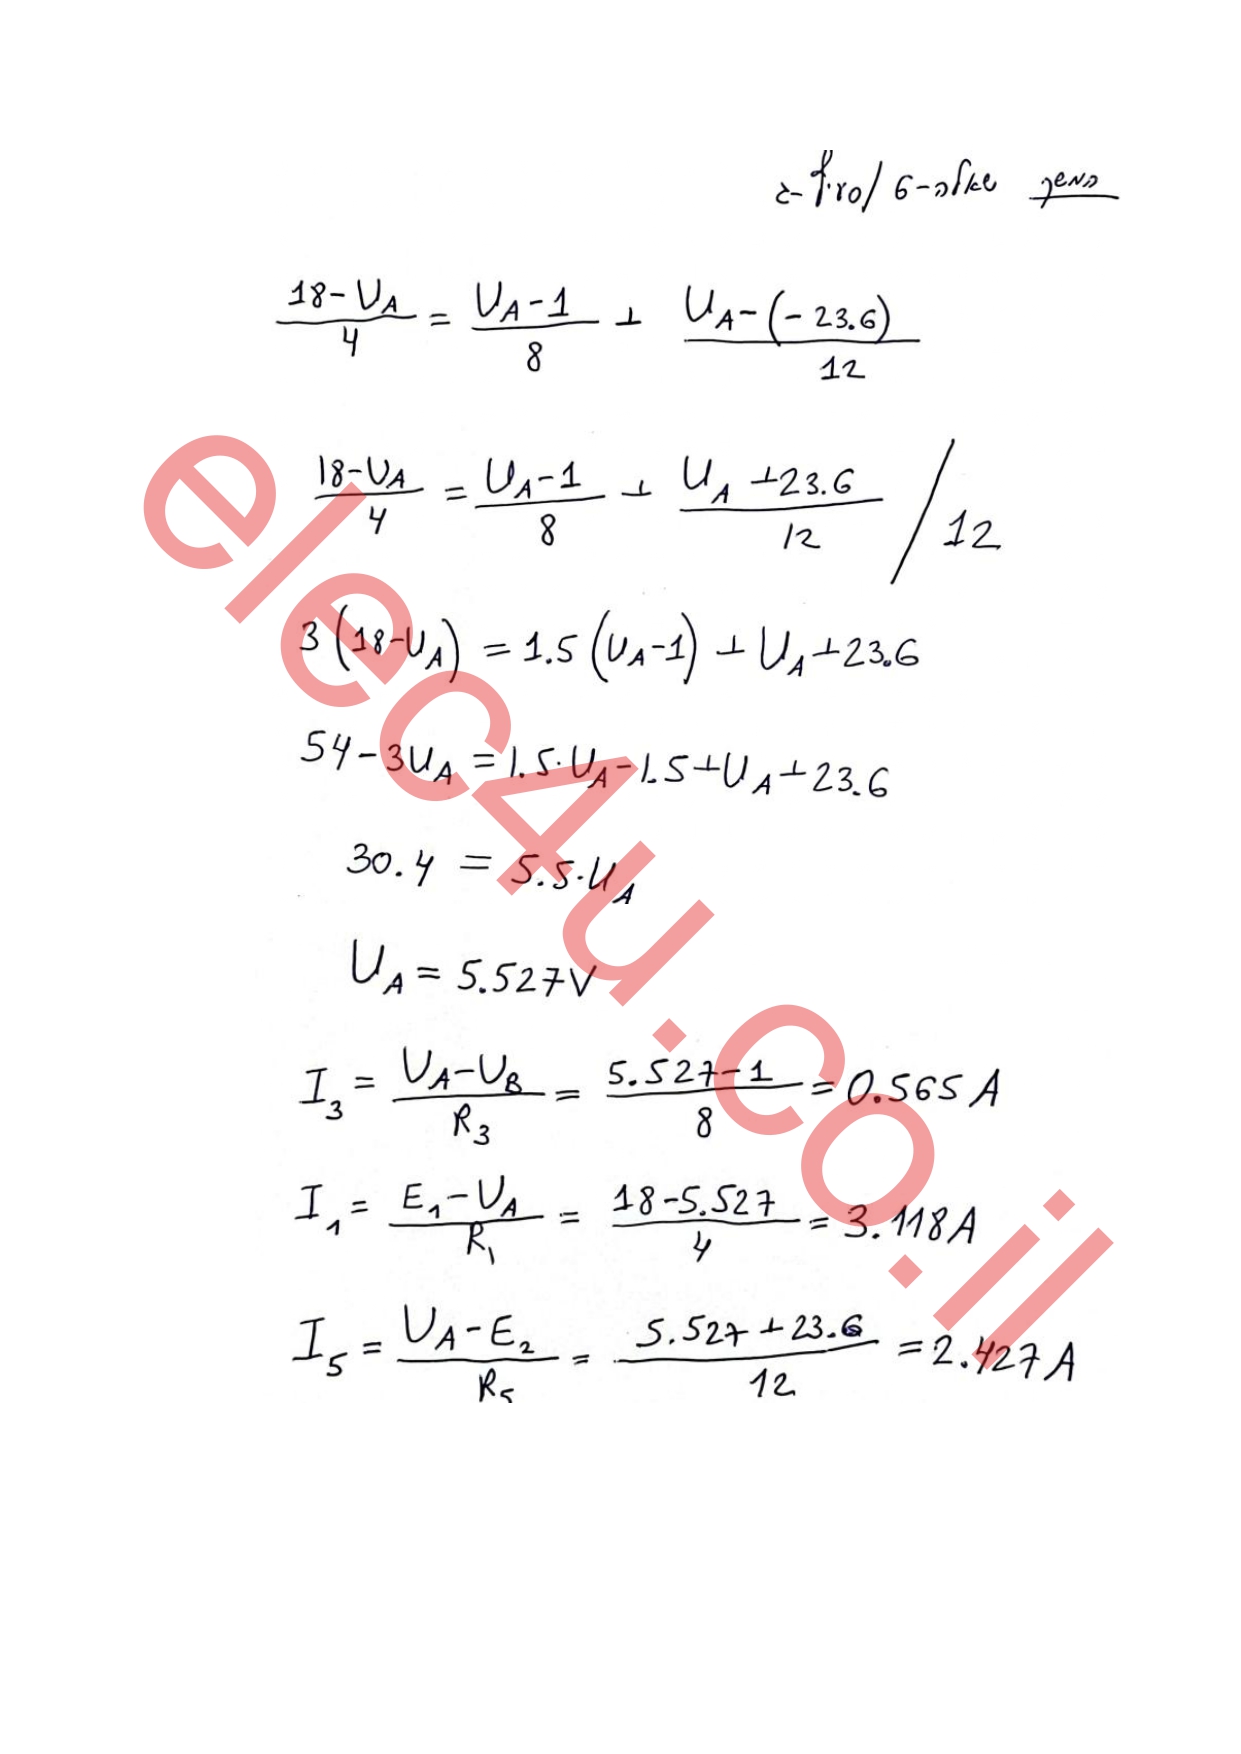 המשך שאלה-6/סעיף ג-
18-UA/4 = UA-1/8 + UA-(-23.6)/12
18-UA/4 = UA-1/8 + UA+23.6/12 / 12
3(18-UA) = 1.5(UA-1) + UA+23.6
54-3UA = 1.5·UA-1.5+UA+23.6
30.4 = 5.5·UA
UA = 5.527V
I3 = UA-UB/R3 = 5.527-1/8 = 0.565 A
I1 = E1-UA/R1 = 18-5.527/4 = 3.118A
I5 = UA-E2/R5 = 5.527+23.6/12 = 2.427A
elec4u.co.il